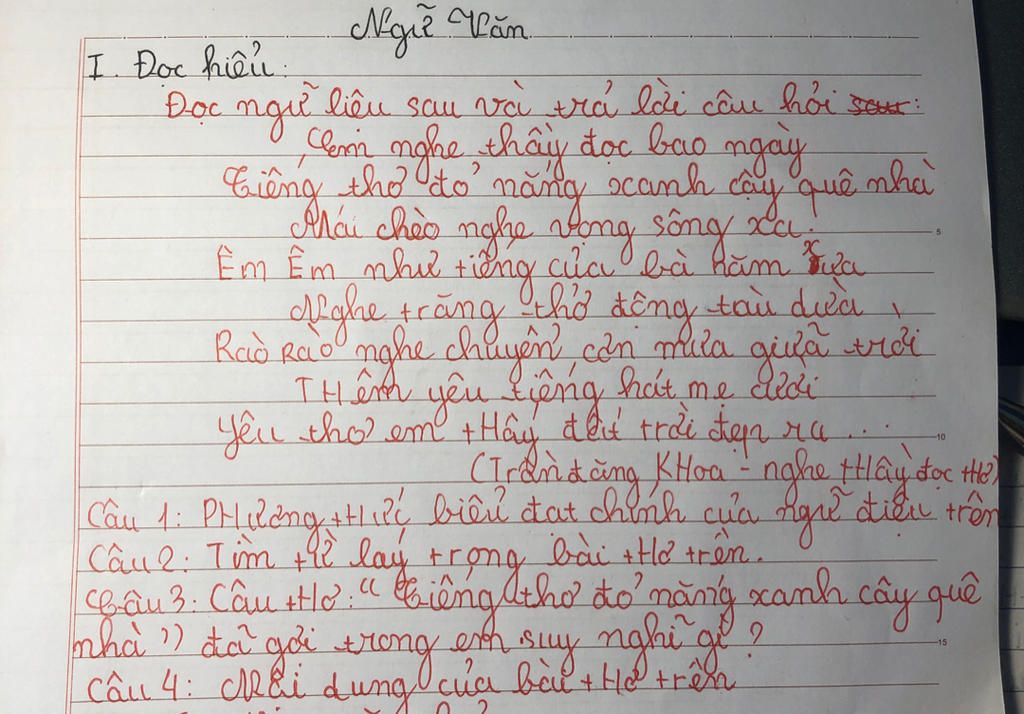 Ngữ Văn
I. Đọc hiểu:
Đọc ngữ liêu sau và trả lời câu hỏi sau:
Em nghe thầy đọc bao ngày
Tiếng thơ đỏ nắng xanh cây quê nhà
Mái chèo nghe vọng sông xa.
Êm Êm như tiếng của bà năm xưa
Nghe trăng thở động tàu dừa
Rào Rào nghe chuyển cơn mưa giữa trời
THêm yêu tiếng hát mẹ cười
Yêu thơ em tHấy đất trời đẹp ra...
(Trần đăng KHoa - nghe tHầy đọc tHơ)
Câu 1: PHương tHức biểu đạt chính của ngữ điệu trên
Câu 2: Tìm từ láy trong bài tHơ trên.
Câu 3: Câu tHơ: "Tiếng thơ đỏ nắng xanh cây quê
nhà" đã gợi trong em suy nghĩ gì?
Câu 4: Nội dung của bài tHơ trên